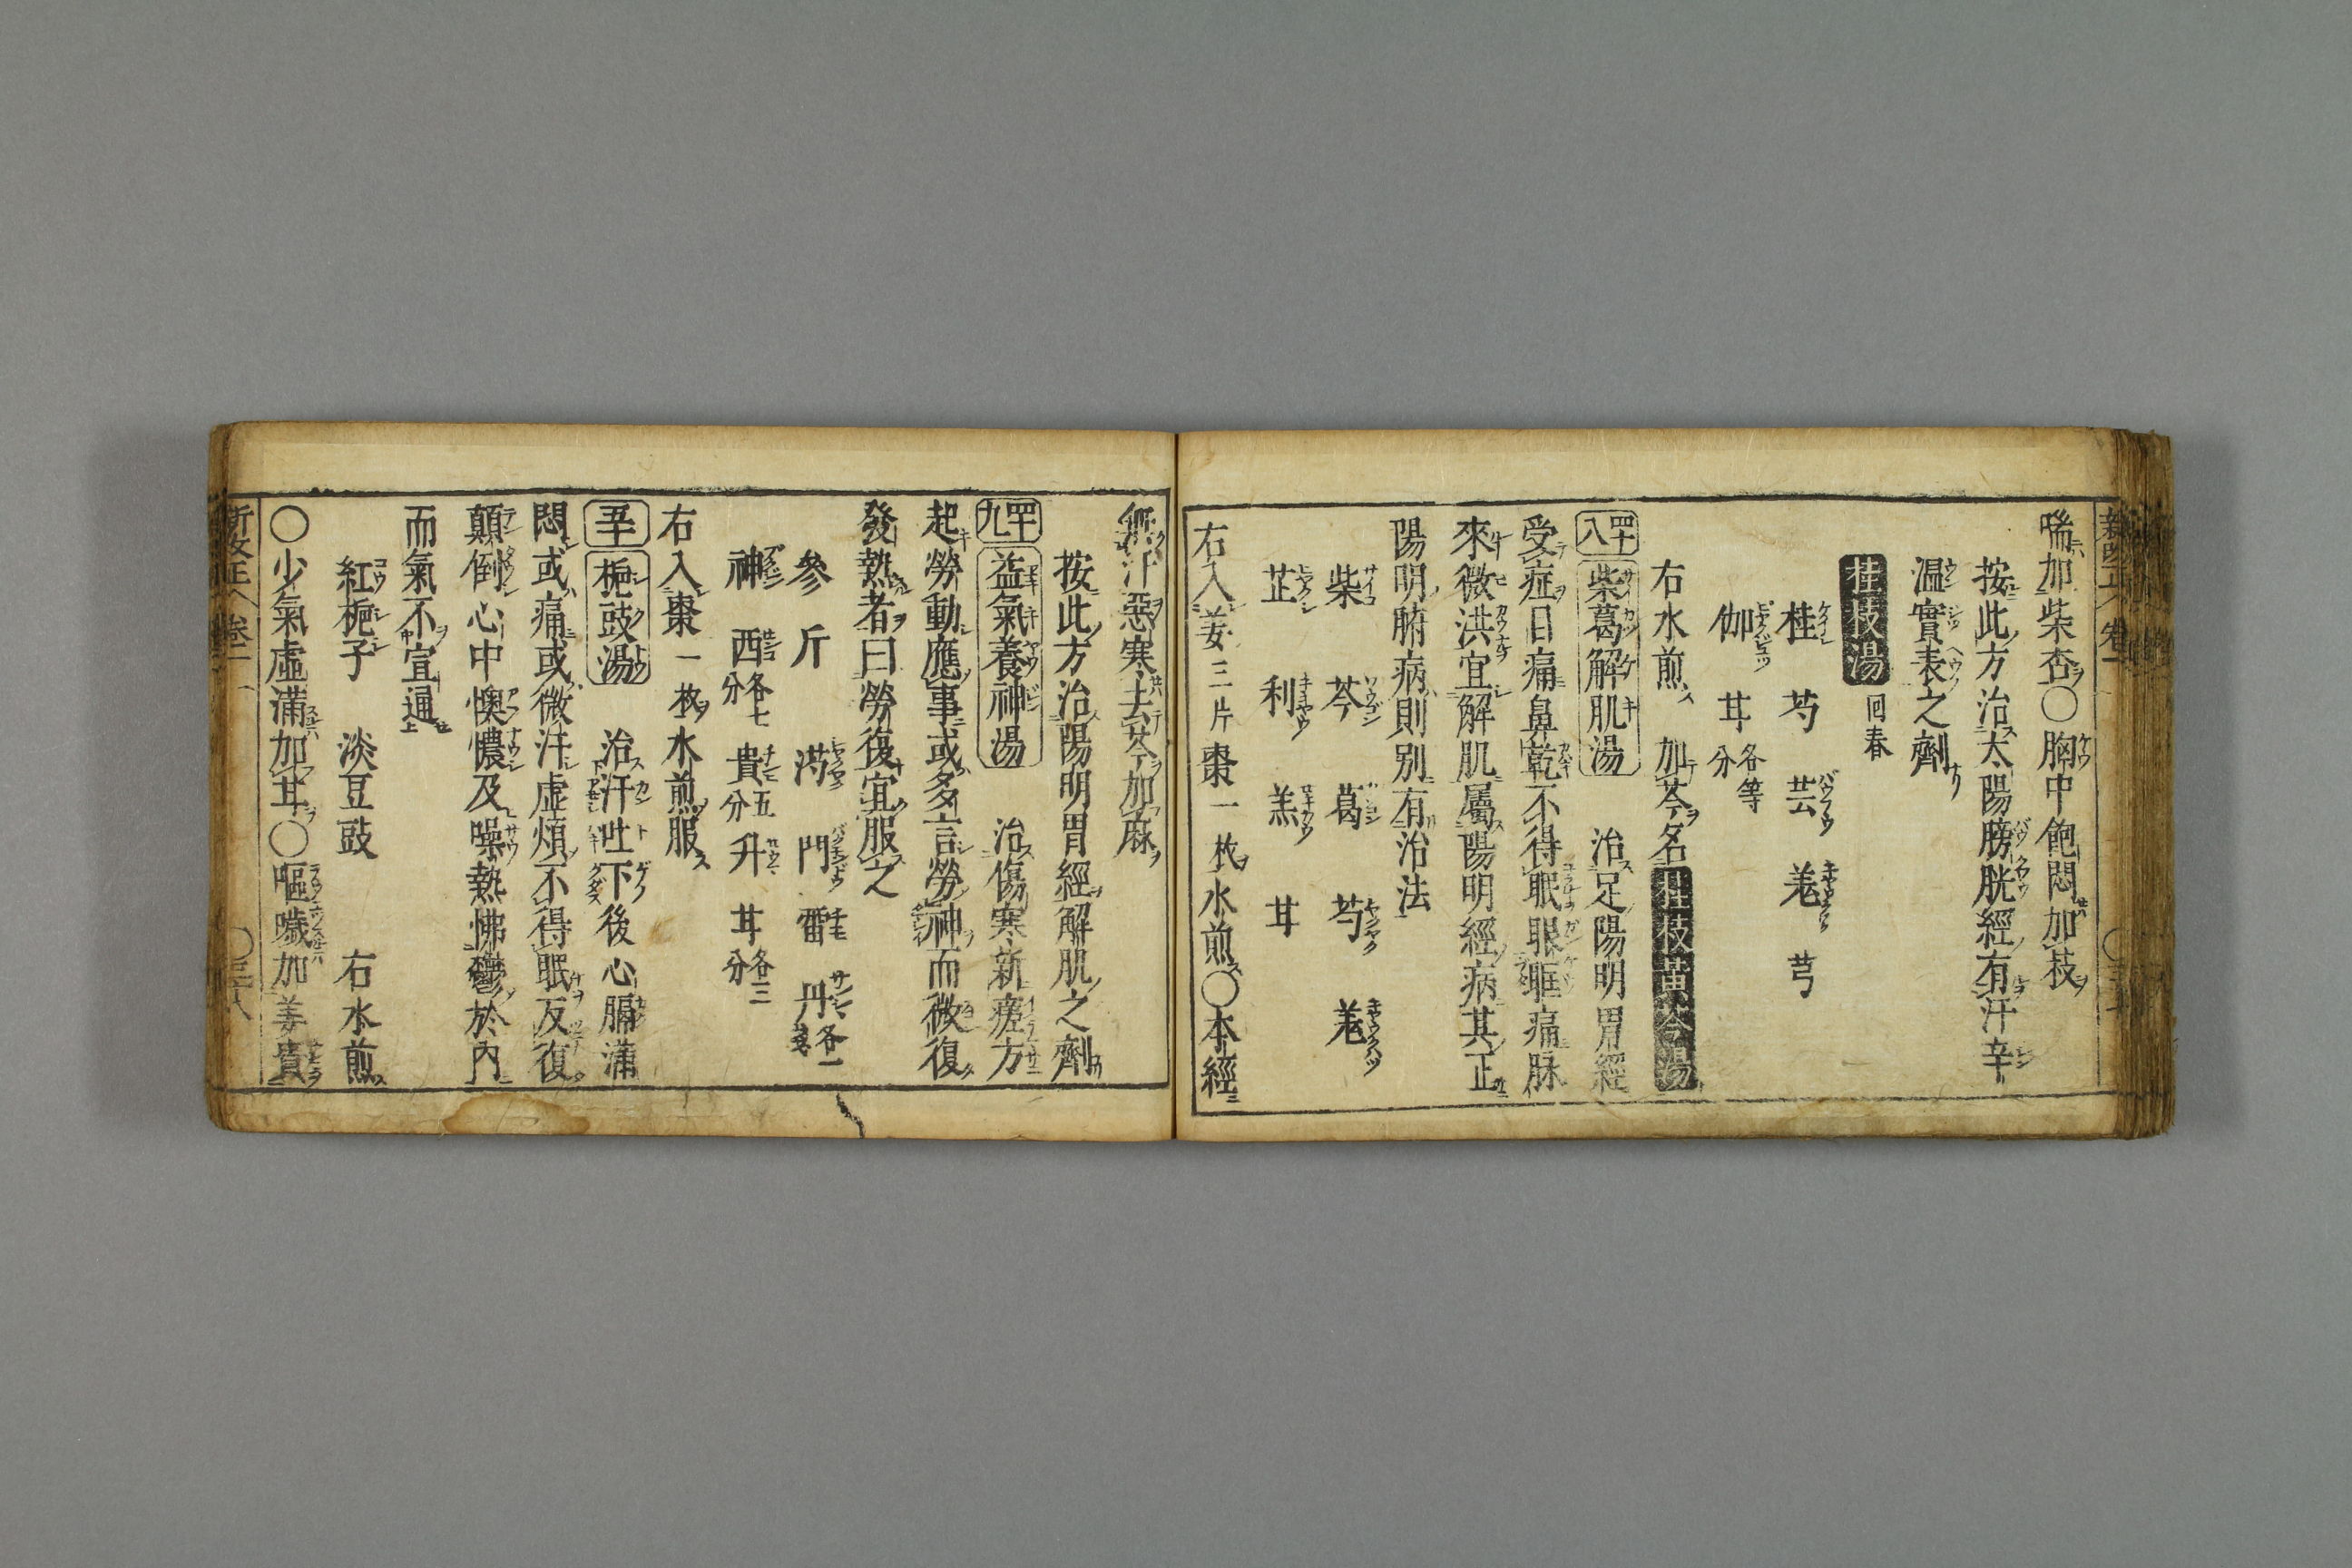 喘加柴杏〇胸中飽悶加枝
按此方治太陽膀胱經有汗辛
温實表之劑
桂枝湯 回春
桂 芍 芸 羌 芎
伽 甘 各等分
右水煎 加芩名桂枝黄芩湯
四十八 柴葛解肌湯 治足陽明胃經
受症目痛鼻乾不得眠眼眶痛脉
來微洪宜解肌屬陽明經病其正
陽明腑病則别有治法
柴 芩 葛 芍 羌
芷 利 羔 甘
右入姜三片棗一枚水煎〇本經
無汗惡寒去芩加麻
按此方治陽明胃經解肌之劑
四十九 益氣養神湯 治傷寒新瘥方
起勞動應事或多言勞神而微復
發熱者曰勞復宜服之
參 斤 芍 門 丹各一
神 西各七分 貴五分 升 甘各三分
右入棗一枚水煎服
五十 梔豉湯 治汗吐下後心膈滿
悶或痛或微汗虛煩不得眠反復
顛倒心中懊憹及噪熱怫鬱於内
而氣不宣通
紅梔子 淡豆豉 右水煎
〇少氣虛滿加甘〇嘔噦加姜貴